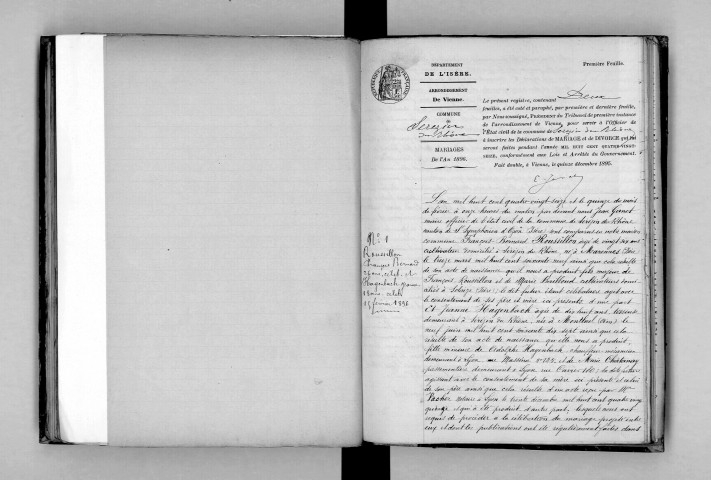 DÉPARTEMENT
DE L'ISÈRE.
ARRONDISSEMENT
De Vienne.
COMMUNE
de
Serezin
du Rhône
MARIAGES
De l'An 1896.
Première Feuille.
Le présent registre, contenant Deux
feuilles, a été coté et paraphé, par première et dernière feuille,
par Nous soussigné, Président du Tribunal de première instance
de l'arrondissement de Vienne, pour servir à l'Officier de
l'État civil de la commune de Serezin du Rhône
à inscrire les Déclarations de MARIAGE et de DIVORCE qui
seront faites pendant l'année MIL HUIT CENT QUATRE-VINGT-
SEIZE, conformément aux Lois et Arrêtés du Gouvernement.
Fait double, à Vienne, le quinze décembre 1895.
N° 1
Roussillon
François Bernard
26 ans, celib. et
Hagenbach Jeanne
18 ans, celib.
15 février 1896
L'an mil huit cent quatre vingt seize et le quinze du mois
de février à onze heures du matin par devant nous Jean Ganet
maire officier de l'état civil de la commune de Serezin du Rhône
canton de St Symphorien d'Ozon Isère, ont comparu en notre maison
commune François Bernard Roussillon âgé de vingt six ans
cultivateur domicilié à Serezin du Rhône, né à Marennes Isère
le treize mars mil huit cent soixante neuf ainsi que cela résulte
de son acte de naissance qu'il nous a produit, fils majeur de
François Roussillon et de Marie cultivateurs domi-
ciliés à Solaize (Isère); le dit futur étant célibataire agissant avec
le consentement de ses père et mère ici présents d'une part
Et Jeanne Hagenbach âgée de dix huit ans, tisseuse
demeurant à Serezin du Rhône, née à Montluel (Ain) le
neuf juin mil huit cent soixante dix sept ainsi que cela
résulte de son acte de naissance qu'elle nous a produit,
fille mineure de Adolphe Hagenbach, chauffeur mécanicien
demeurant à Lyon rue Masséna n° et de Marie
passementière demeurant à Lyon, rue la dite future
agissant avec le consentement de sa mère ici présente et celui
de son père ainsi que cela résulte d'un acte reçu par Me
Pacher notaire à Lyon le trente décembre mil huit cent quatre vingt
quinze et qui a été produit, d'autre part, lesquels nous ont
requis de procéder à la célébration du mariage projeté entre
eux et dont les publications ont été régulièrement faites dans